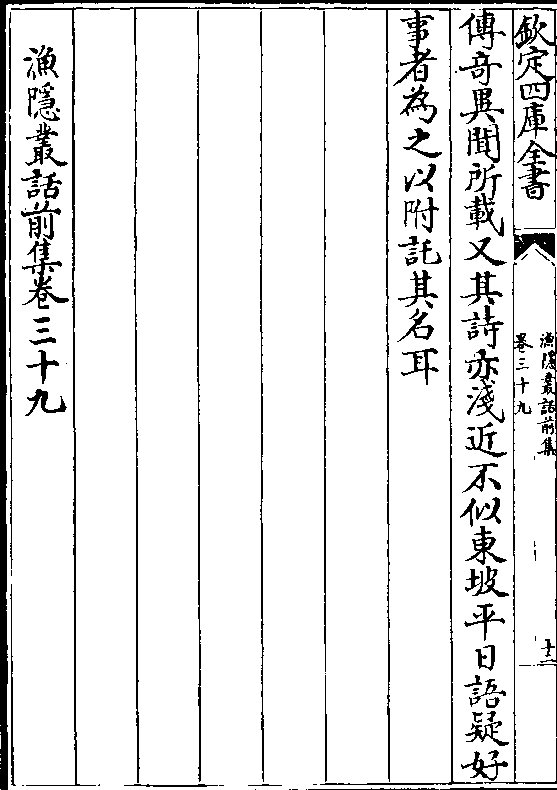 欽定四庫全書
漁隱叢話前集
卷三十九
十二
傳奇異聞所載又其詩亦淺近不似東坡平日語疑好
事者為之以附託其名耳
漁隱叢話前集卷三十九